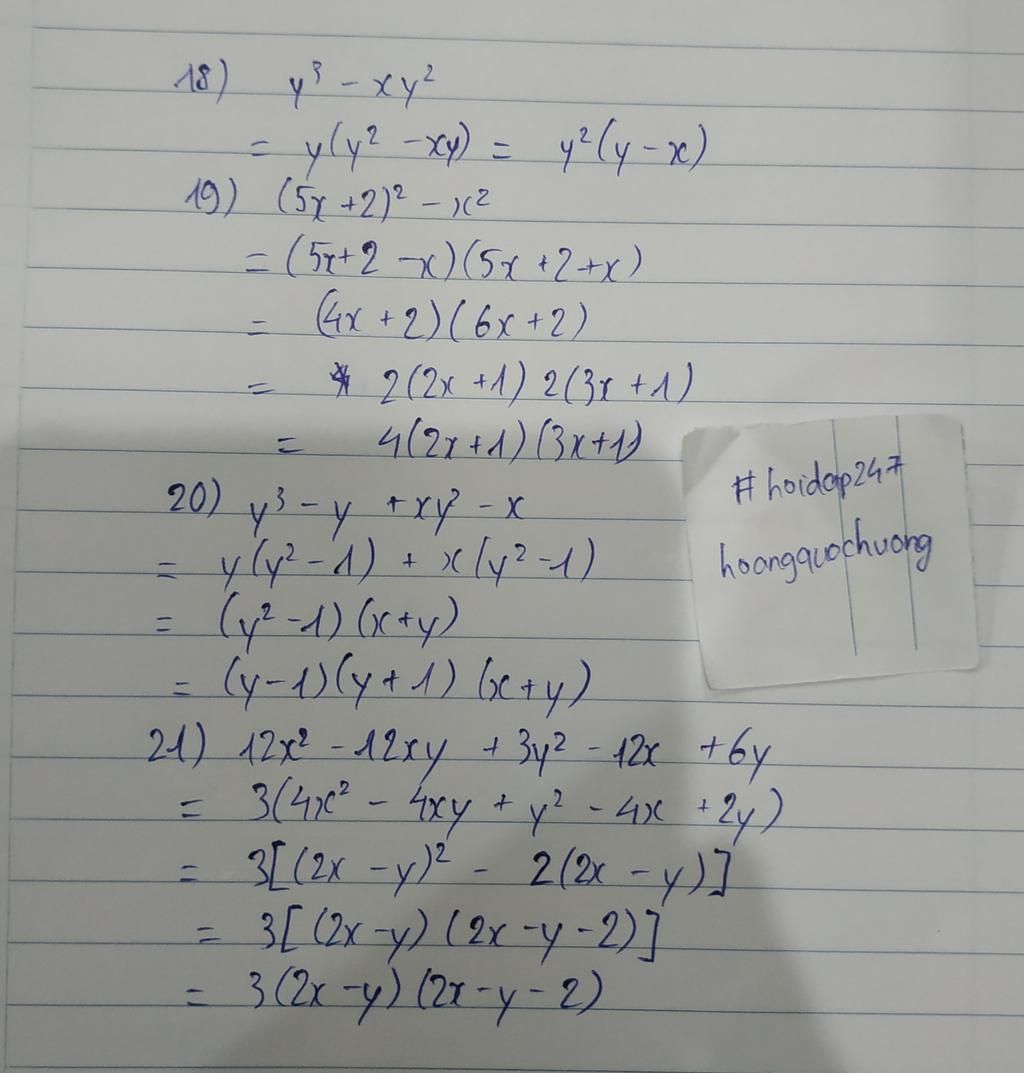 18) y³ - xy²
= y(y² - xy) = y²(y - x)
19) (5x + 2)² - x²
= (5x + 2 - x)(5x + 2 + x)
= (4x + 2)(6x + 2)
= 2(2x + 1) 2(3x + 1)
= 4(2x + 1)(3x + 1)
20) y³ - y + xy² - x
= y(y² - 1) + x(y² - 1)
= (y² - 1)(x + y)
= (y - 1)(y + 1)(x + y)
21) 12x² - 12xy + 3y² - 12x + 6y
= 3(4x² - 4xy + y² - 4x + 2y)
= 3[(2x - y)² - 2(2x - y)]
= 3[(2x - y)(2x - y - 2)]
= 3(2x - y)(2x - y - 2)
#hoidap247
hoangquochuong